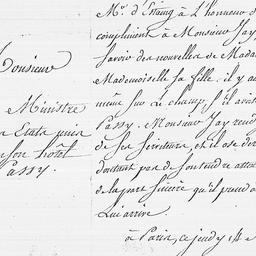 Monsieur
Ministre
Etats unis
son hôtel
Passy.
Mr. d'Estaing à l'honneur d
compliment à Monsieur Jay
savoir des nouvelles de Madam
Mademoiselle sa fille. il y a
même sur ce champ, s'il avoit
Passy. Monsieur Jay rend
de ses serviteurs, et il ose
doutant pas de son tendre atta
de la part sincère qu'il prend à
lui arrive.
à Paris, ce jeudy 14